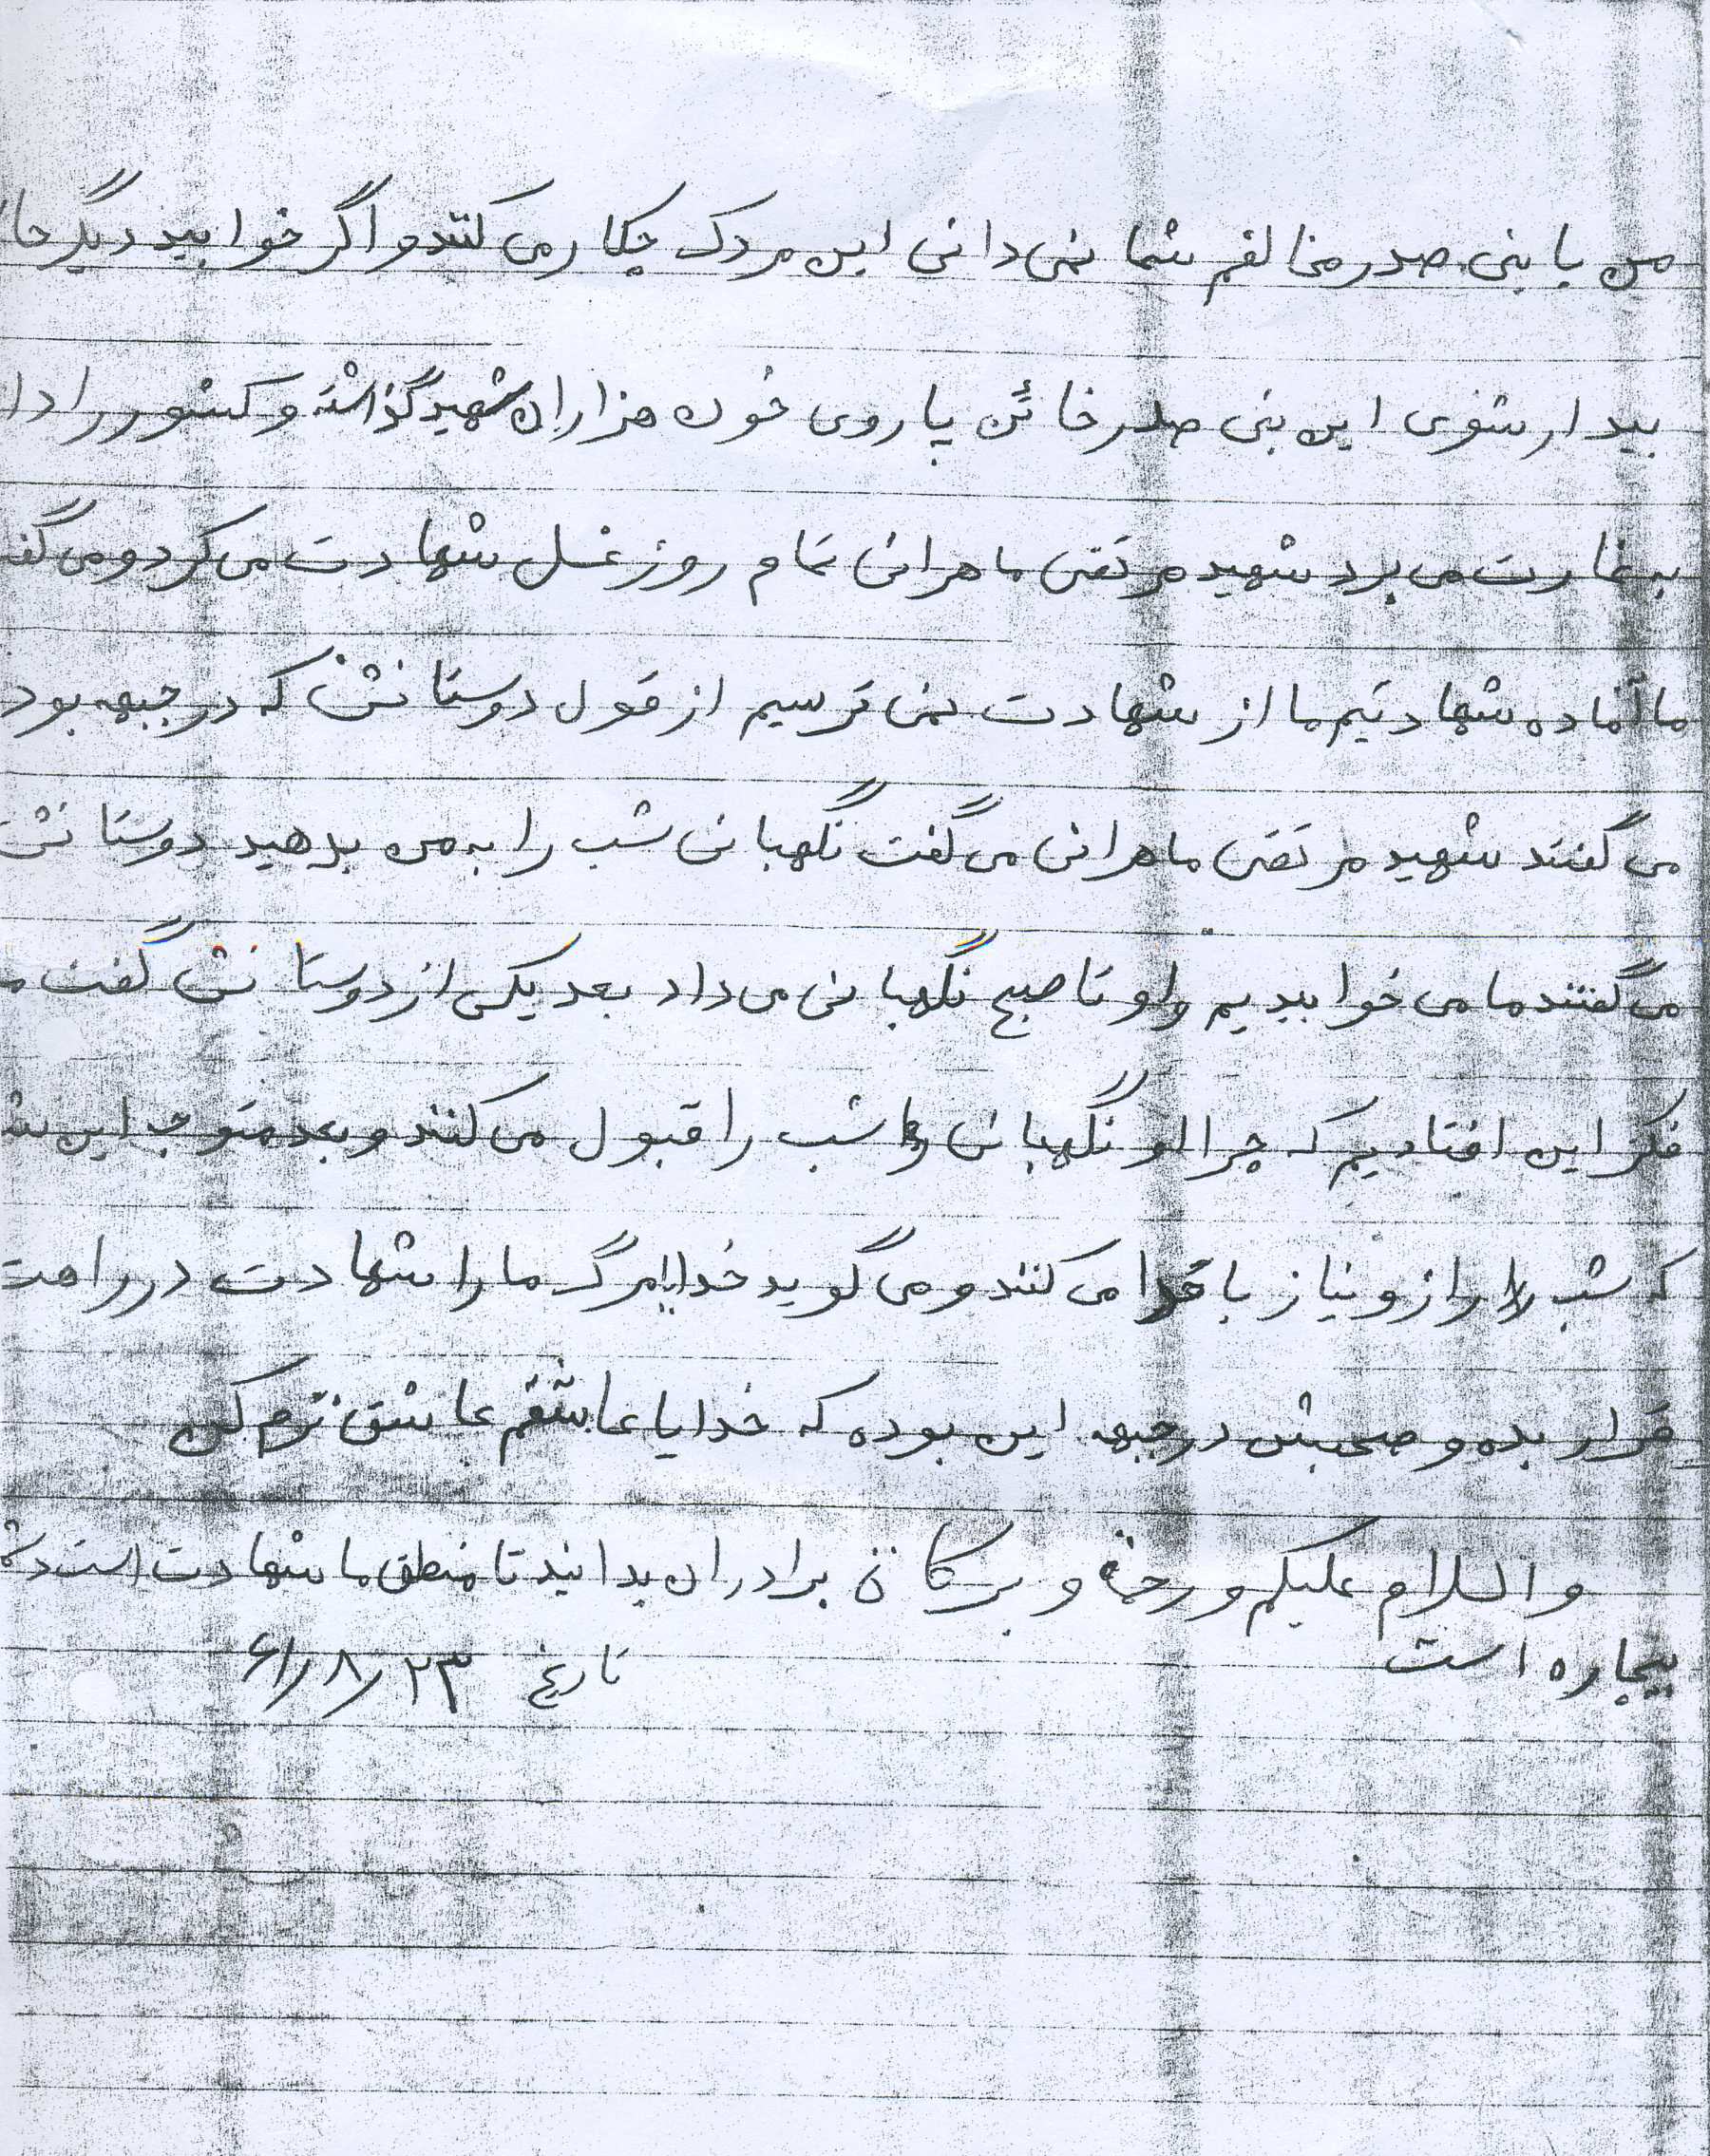 من با بنی صدر مخالفم شما نمی دانی این مردک چکار می کنند و اگر خوابید دیگر
بیدار شوی این بنی صدر خائن پا روی خون هزاران شهید گذاشته و کشور را
به غارت می برد شهید مرتضی ماهرانی تمام روز غسل شهادت می کرد و می
ما آماده شهادتیم ما از شهادت نمی ترسیم از قول دوستانش که در جبهه بود
می گفتند شهید مرتضی ماهرانی می گفت نگهبانی شب را به من بدهید دوستانش
می گفتند ما می خوابیدیم ولو تا صبح نگهبانی می داد بعد یکی از دوستانش گفت
فکر این افتادیم که چرا نگهبانی شب را قبول می کنند و بعد متوجه این
که شب را راز و نیاز با خدا می کنند و می گوید خدایا مرگ ما را شهادت در راهت
قرار بده و صحبتش در جبهه این بوده که خدایا عاشقم عاشق ترم کن
والسلام علیکم و رحمة و برکاتة برادران بدانید تا منطق ما شهادت است
بیچاره است
تاریخ ۶۱/۸/۲۳